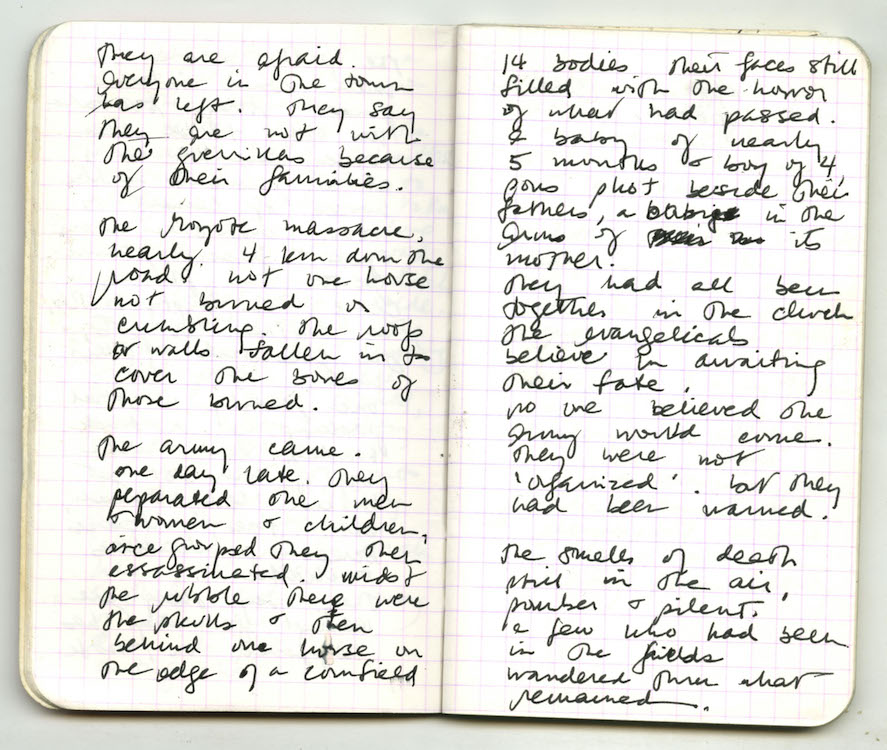 they are afraid.
everyone in the town
has left. they say
they are not with
the guerrillas because
of their families.
the Mozote massacre,
nearly 4 km down the
road not one house
not burned or
crumbling. the roofs
or walls fallen in to
cover the bones of
those burned.
the army came.
one day late. they
separated the men
& women & children,
once grouped they then
assassinated. midst
the rubble there were
the skulls & then
behind one house on
the edge of a cornfield
14 bodies their faces still
filled with the horror
of what had passed.
a baby of nearly
5 months a boy of 4,
sons shot beside their
fathers, a baby in the
arms of its
mother.
they had all been
together in the church
the evangelicals
believe in awaiting
their fate.
no one believed the
army would come.
they were not
'organized'. but they
had been warned.
the smells of death
still in the air,
somber & silent.
a few who had been
in the fields
wandered thru what
remained.